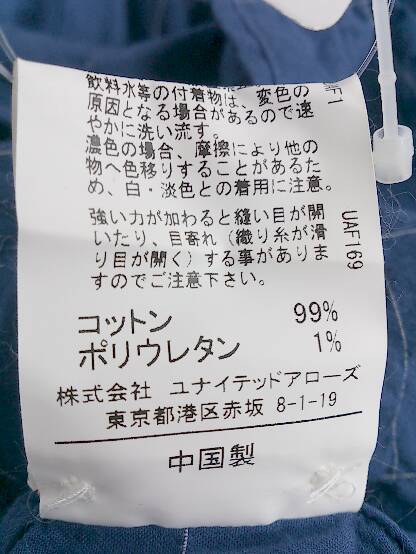 飲料水等の付着物は、変色の
原因となる場合があるので速
やかに洗い流す。
濃色の場合、摩擦により他の
物へ色移りすることがあるた
め、白・淡色との着用に注意。
強い力が加わると縫い目が開
いたり、目寄れ（織り糸が滑
り目が開く）する事がありま
すのでご注意下さい。
UAF169
コットン 99%
ポリウレタン 1%
株式会社 ユナイテッドアローズ
東京都港区赤坂 8-1-19
中国製